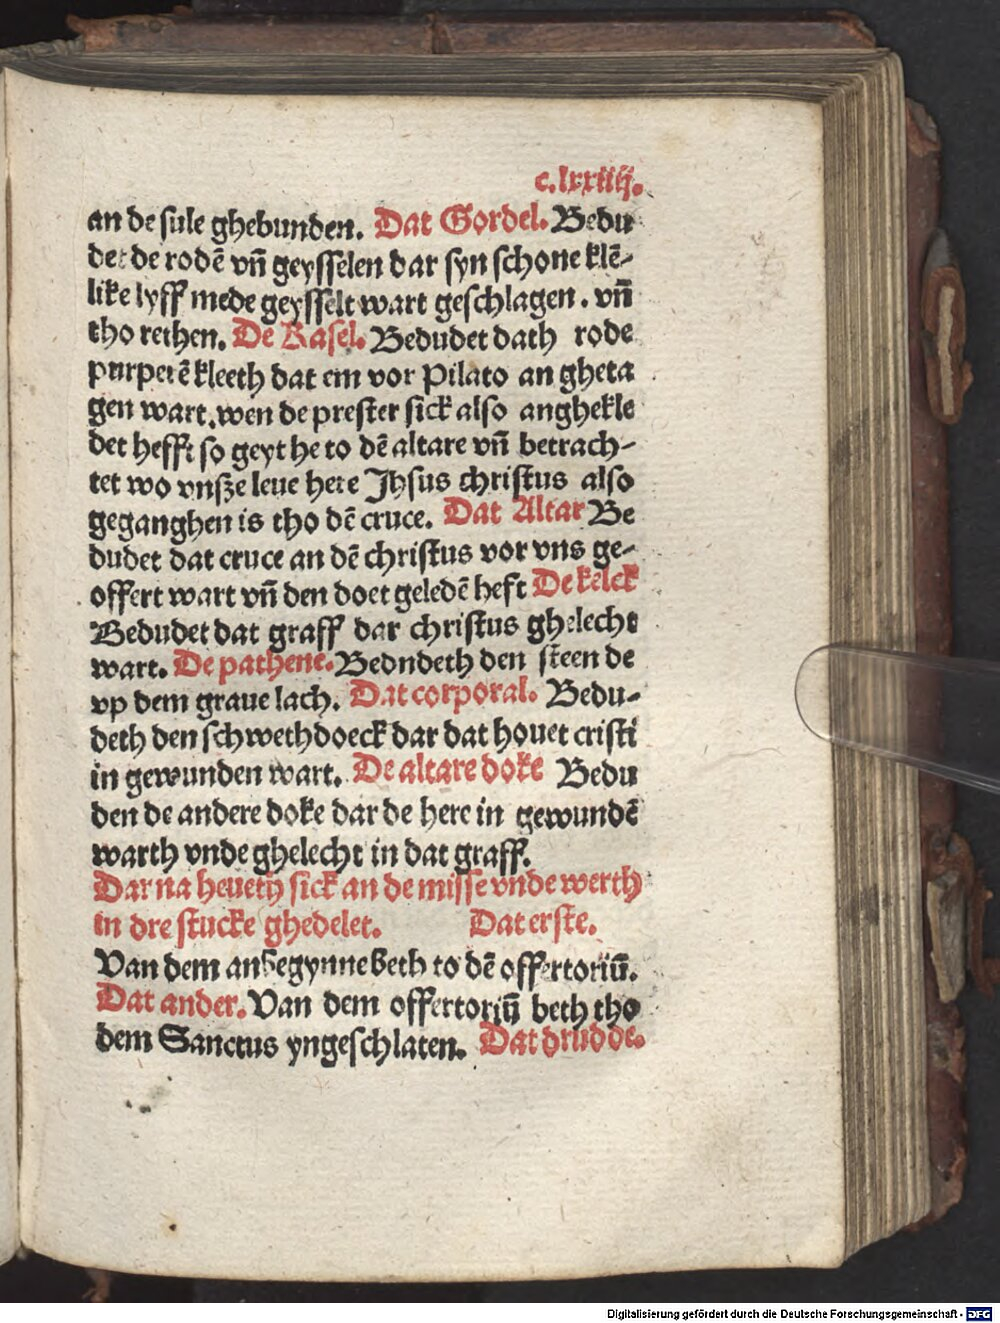 c.lxxiiij.
an de sule ghebunden. Dat Gordel. Bedu
det de rodē vn̄ geysselen dar syn schone klē-
like lyff mede geysselt wart geschlagen. vn̄
tho rethen. De Kasel. Bedudet dath rode
purperē kleeth dat em vor Pilato an gheta
gen wart. wen de prester sick also anghekle
det hefft so geyt he to dē altare vn̄ betrach-
tet wo vnsze leue here Jhsus christus also
geganghen is tho dē cruce. Dat Altar Be
dudet dat cruce an dē christus vor vns ge-
offert wart vn̄ den doet geledē heft De kelck
Bedudet dat graff dar christus ghelecht
wart. De pathene. Bedudeth den steen de
vp dem graue lach. Dat corporal. Bedu-
deth den schwethdoeck dar dat houet cristi
in gewunden wart. De altare doke Bedu
den de andere doke dar de here in gewundē
warth vnde ghelecht in dat graff.
Dar na heueth sick an de misse vnde werth
in dre stucke ghedelet. Dat erste.
Van dem anbegynne beth to dē offertoriū.
Dat ander. Van dem offertoriū beth tho
dem Sanctus yngeschlaten. Dat drudde.
Digitalisierung gefördert durch die Deutsche Forschungsgemeinschaft - DFG